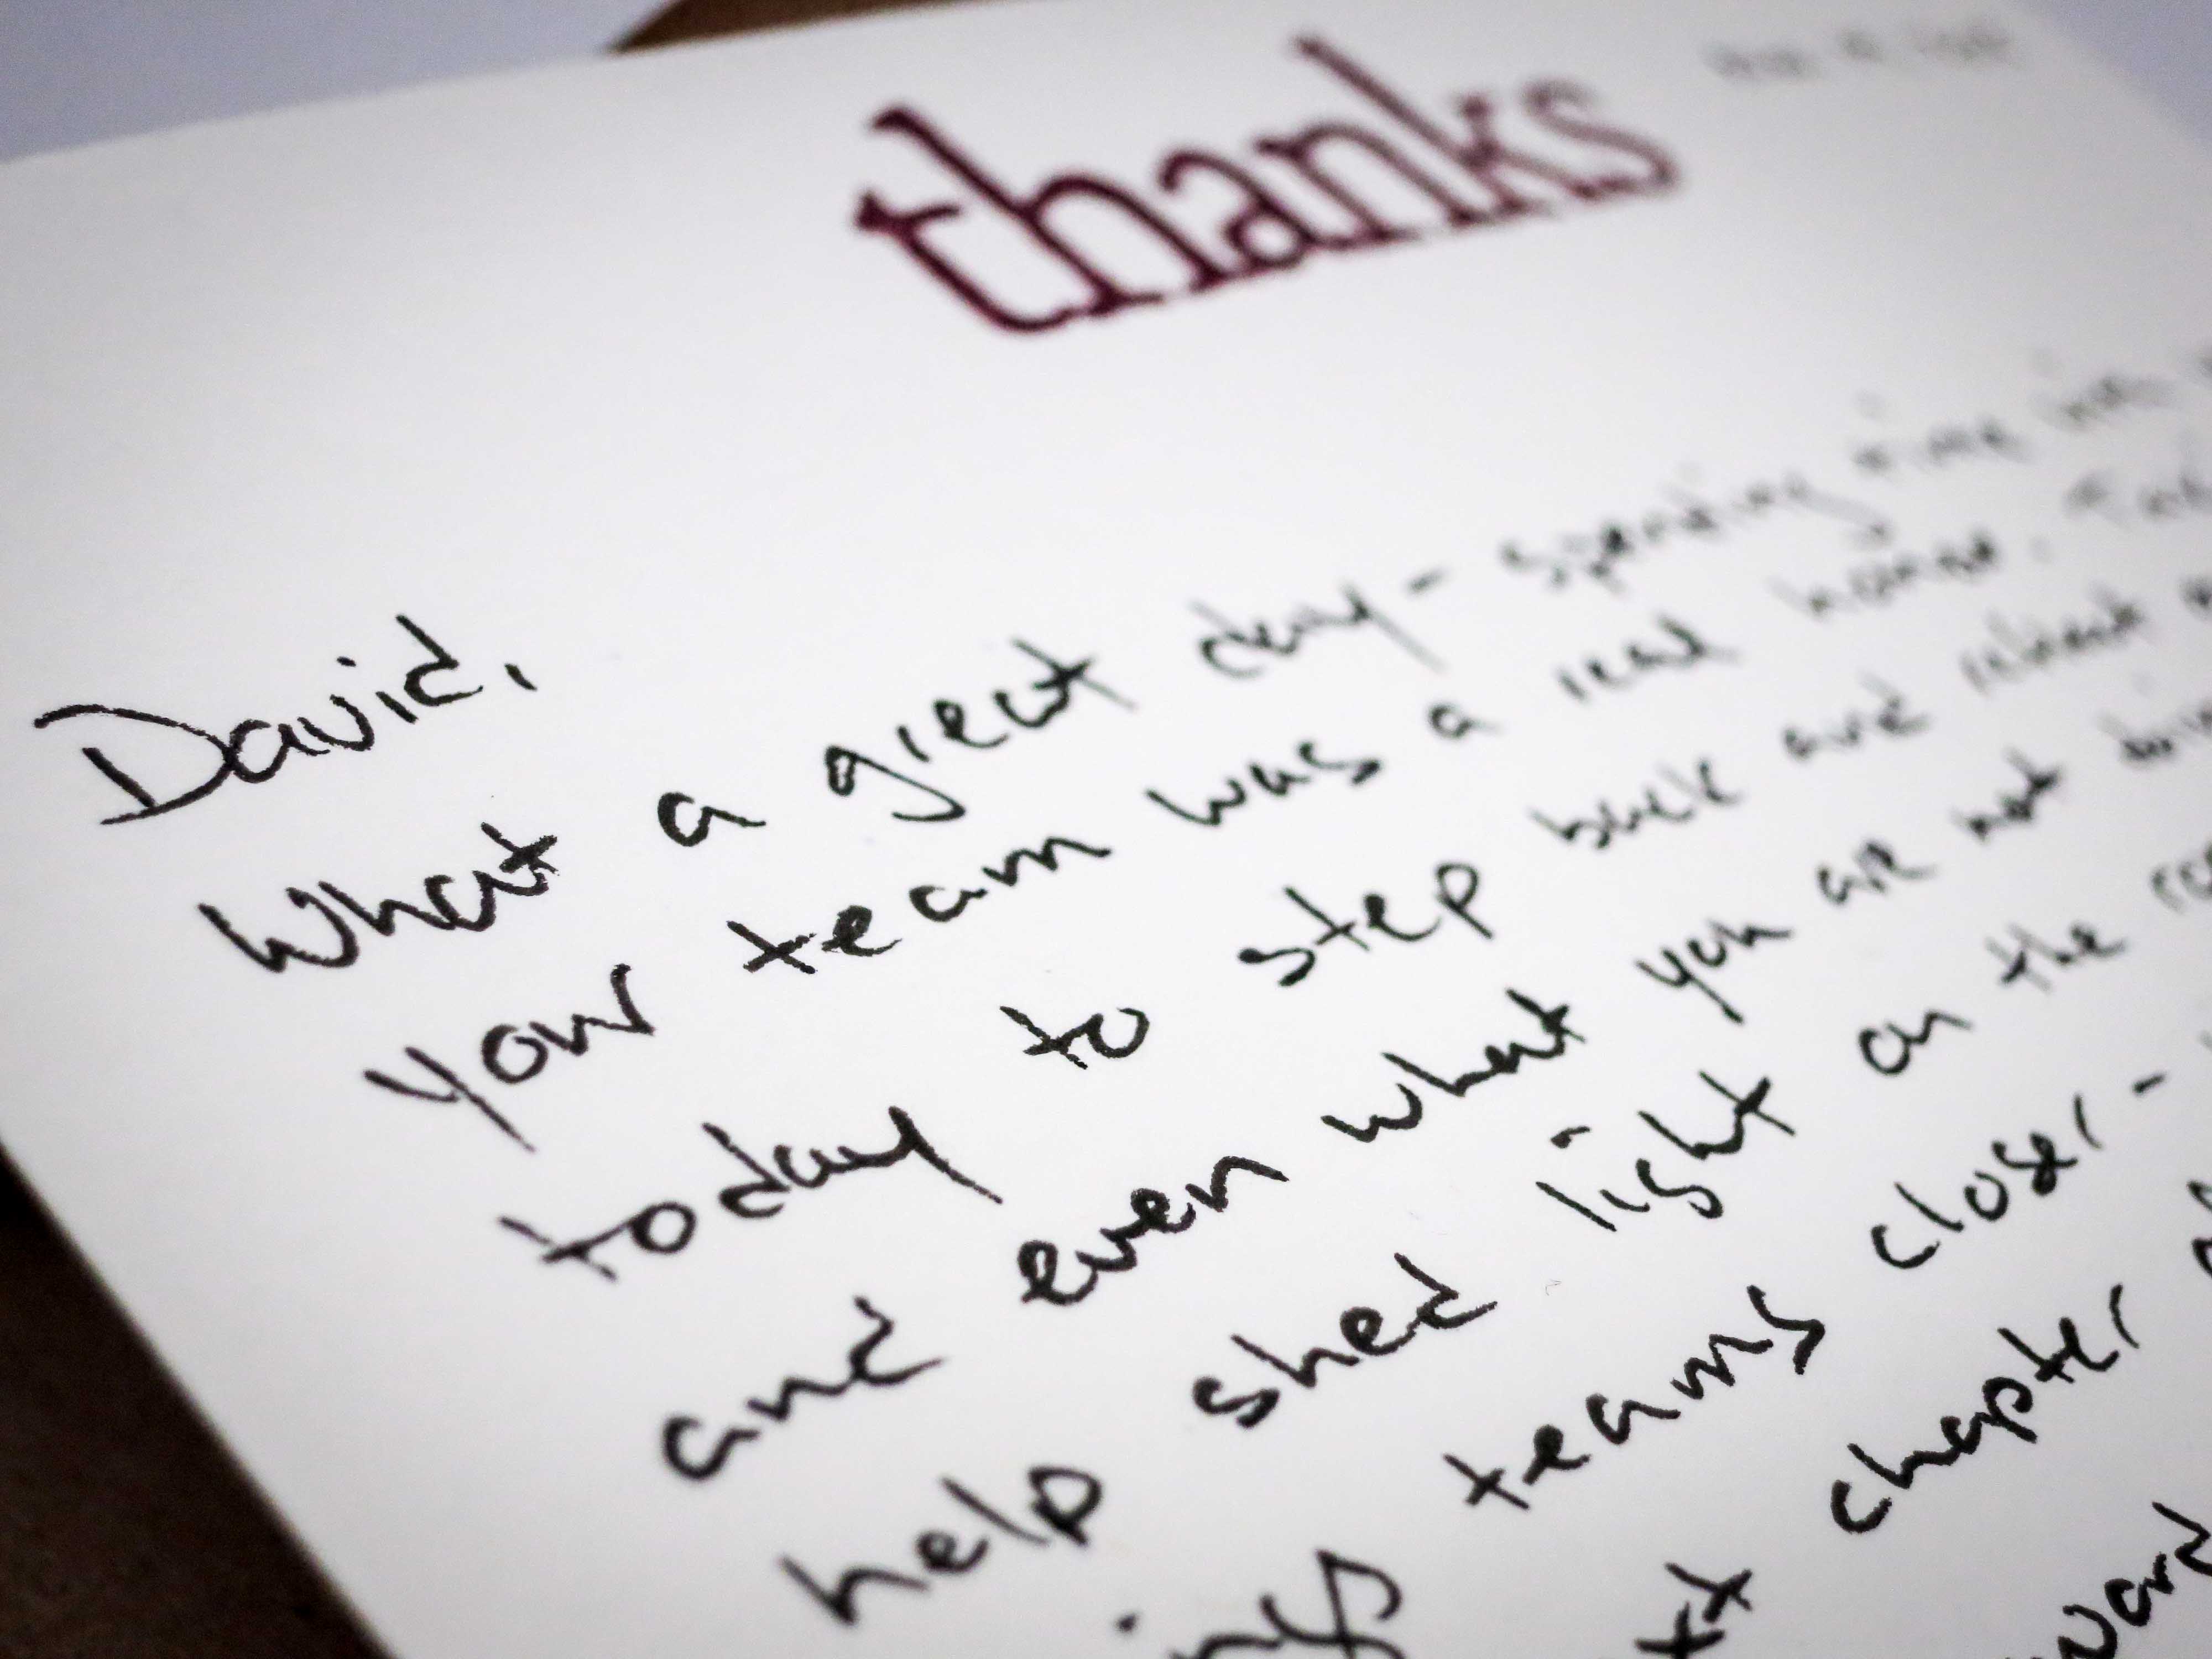 thanks
David,
What a great day - spending time
your team was a real honor.
today to step back and
and even what you are not
help shed light on the
teams closer -
chapter